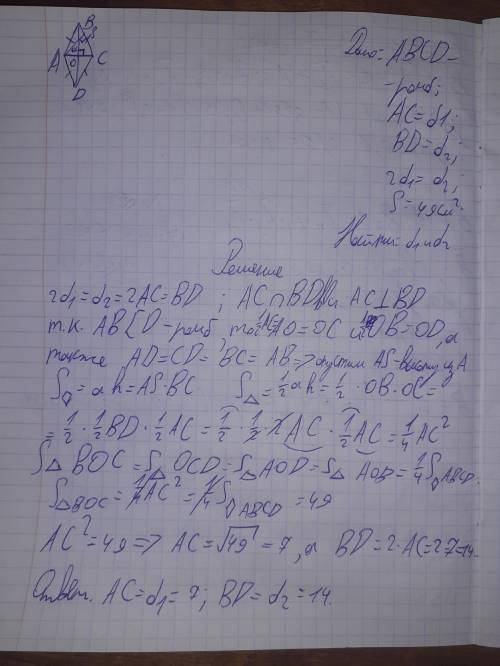 B
S
A O C
D
Дано: ABCD-
-ромб;
AC=d1;
BD=d₂;
2d₁=d₂;
S=49см²
Найти: d₁ и d₂
Решение
2d₁=d₂=2AC=BD ; AC∩BD и AC⊥BD
т.к. ABCD-ромб, то AO=OC и OB=OD, а
также AD=CD=BC=AB=> опустим AS-высоту из A
S◊=ah=AS·BC S△=1/2ah=1/2·OB·OC=
=1/2·1/2BD·1/2AC=1/2·1/2·2AC·1/2AC=1/4AC²
S△BOC=S△OCD=S△AOD=S△AOB=1/4S◊ABCD.
S△BOC=1/4AC²=1/4S◊ABCD=49
AC²=49=>AC=√49=7, а BD=2·AC=2·7=14.
Ответ. AC=d₁=7; BD=d₂=14.